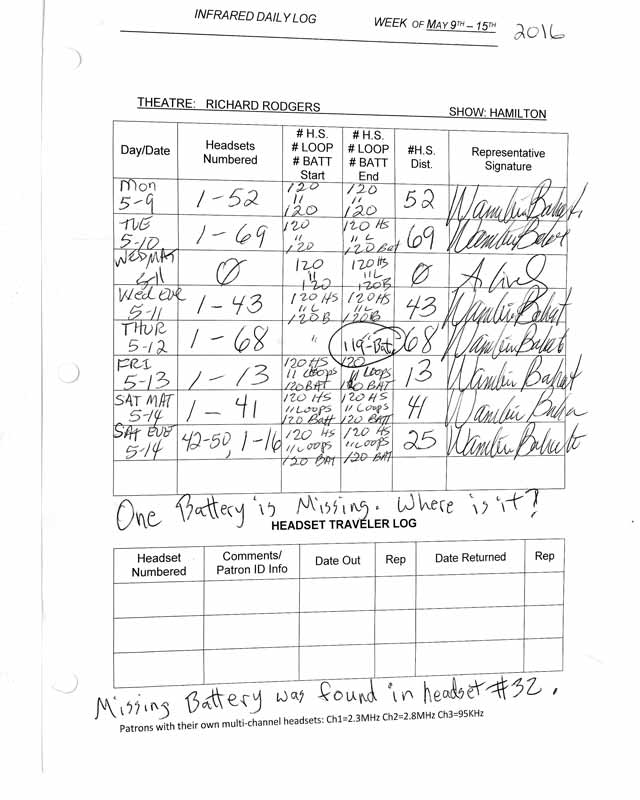 INFRARED DAILY LOG WEEK OF MAY 9TH – 15TH 2016
THEATRE: RICHARD RODGERS SHOW: HAMILTON
Day/Date Headsets Numbered # H.S. # LOOP # BATT Start # H.S. # LOOP # BATT End #H.S. Dist. Representative Signature
Mon 5-9 1-52 120 " 120 120 " 120 52
TUE 5-10 1-69 120 " 120 120 HS " L 120 Bat 69
WED MAT 5-11 0 120 " 120 120 HS " L 120B 0
Wed eve 5-11 1-43 120 HS " L 120 B 120 HS " L 120 B 43
THUR 5-12 1-68 " 119-Bat 68
FRI 5-13 1-13 120 HS 11 Loops 120 BAT 120 11 Loops 120 BAT 13
SAT MAT 5-14 1-41 120 HS 11 Loops 120 Batt 120 HS 11 Loops 120 BAT 41
SAT EVE 5-14 42-50, 1-16 120 HS 11 Loops 120 BAT 120 HS 11 Loops 120 BAT 25
One Battery is Missing. Where is it?
HEADSET TRAVELER LOG
Headset Numbered Comments/ Patron ID Info Date Out Rep Date Returned Rep
Missing Battery was found in headset #32.
Patrons with their own multi-channel headsets: Ch1=2.3MHz Ch2=2.8MHz Ch3=95KHz